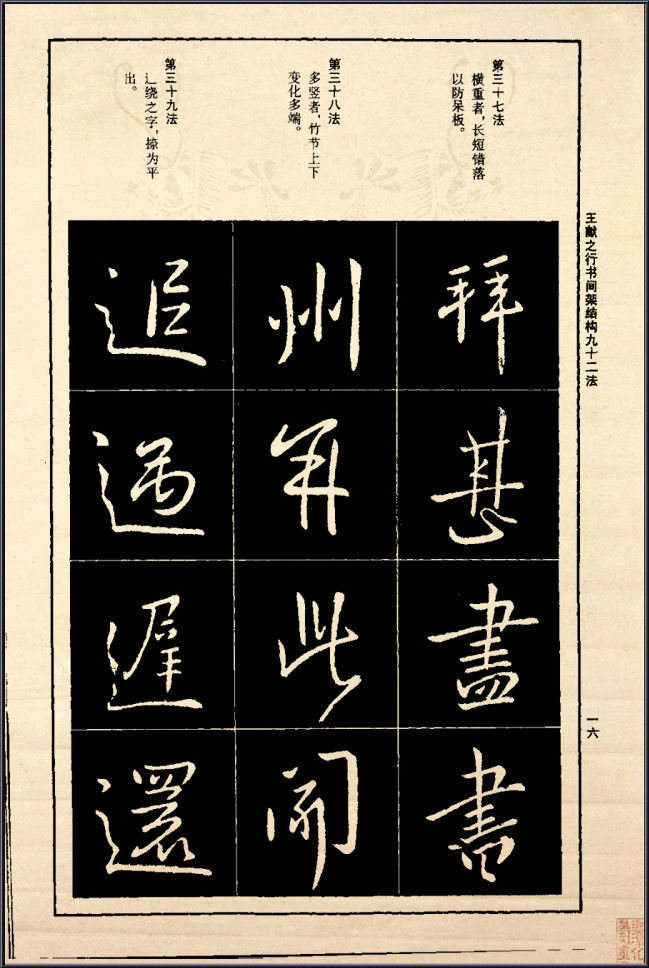 王献之行书间架结构九十二法
一六
第三十七法
横重者，长短错落
以防呆板。
拜
甚
盡
書
第三十八法
多竖者，竹节上下
变化多端。
州
并
此
第三十九法
辶绕之字，捺为平
出。
追
遇
遲
還